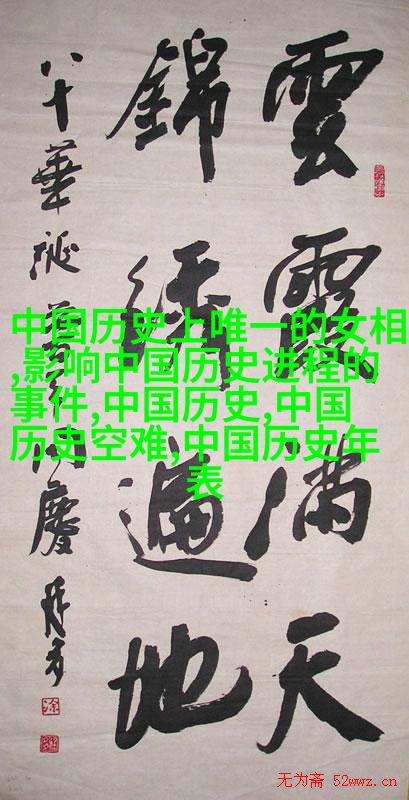 雲霞满天
錦綉遍地
八十華诞
同慶
中国历史上唯一的女相
,影响中国历史进程的
事件,中国历史,中国
历史空难,中国历史年
表
无为斋 52wwz.cn